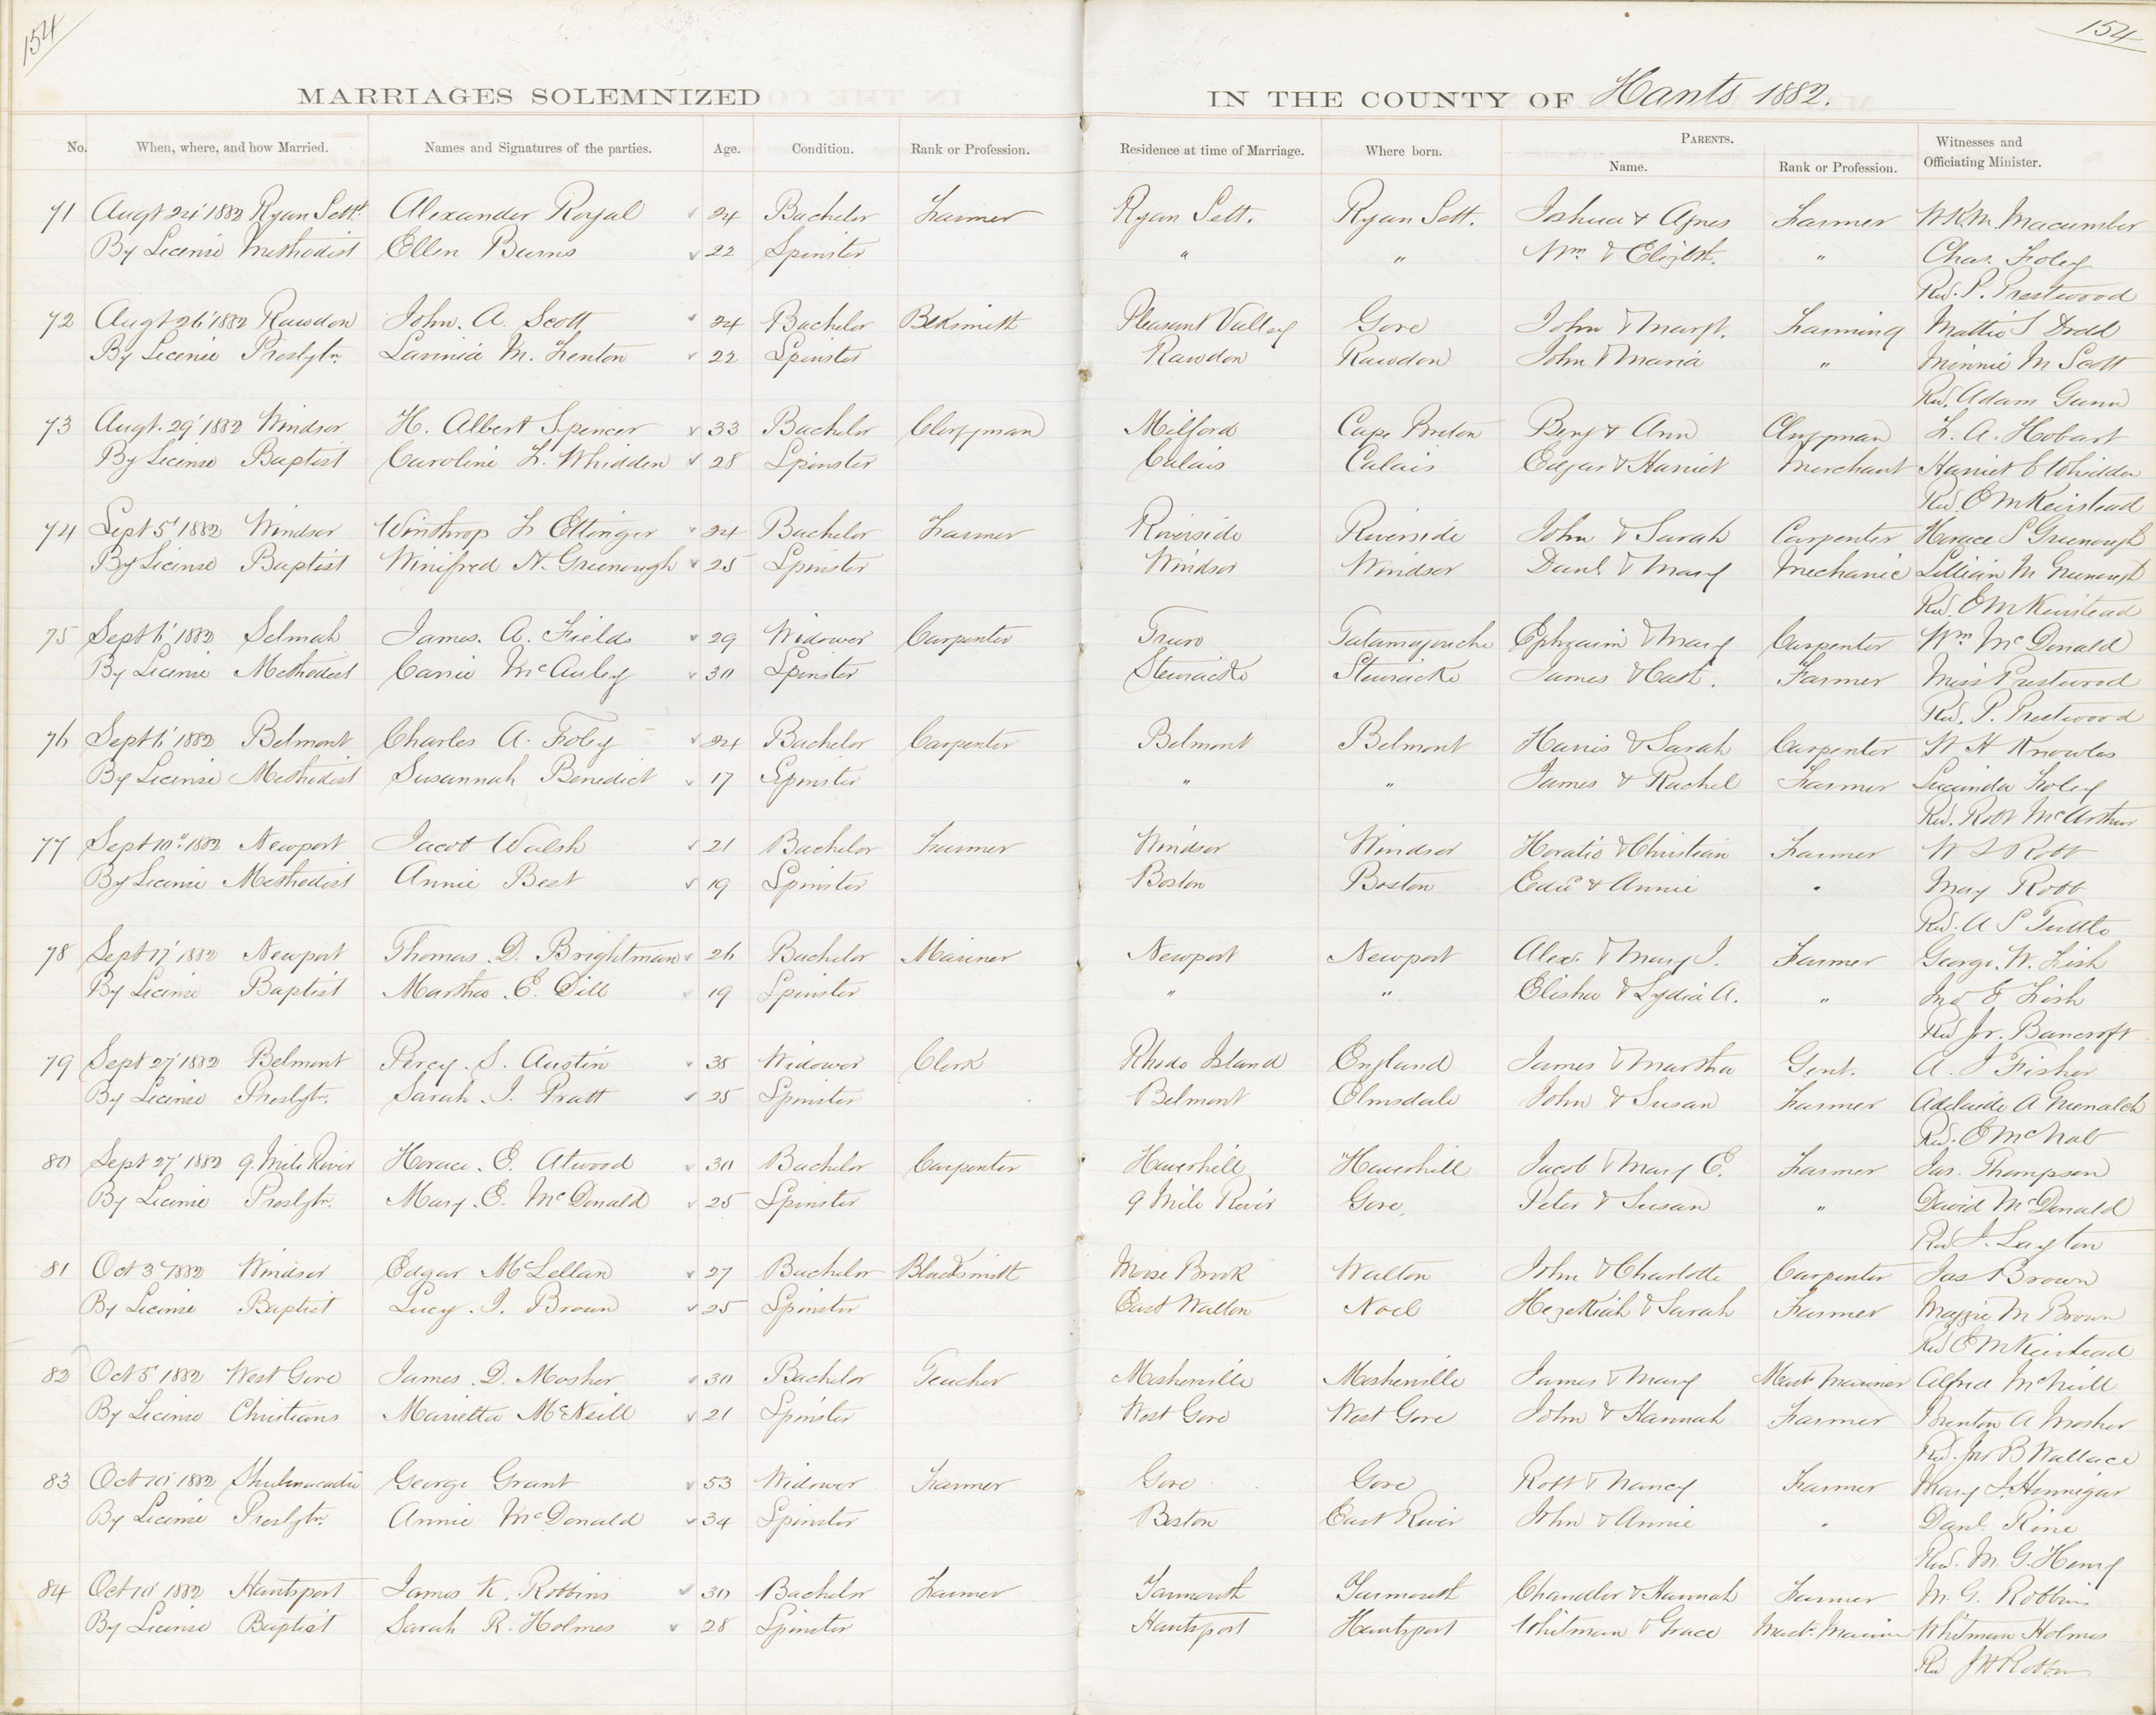 154
154
MARRIAGES SOLEMNIZED IN THE COUNTY OF Hants 1882.
No. When, where, and how Married. Names and Signatures of the parties. Age. Condition. Rank or Profession. Residence at time of Marriage. Where born. PARENTS. Name. Rank or Profession. Witnesses and Officiating Minister.
71 Augt 24' 1882 Ryan Settt. Alexander Royal 24 Bachelor Farmer Ryan Sett. Ryan Sett. Joshua & Agnes Farmer W.K.M. Macumber
By License Methodist Ellen Burns 22 Spinster " " Wm & Elizbt. " Chas. Foley
Rev. P. Prestwood
72 Augt 26' 1882 Rawdon John. A. Scott 24 Bachelor Blksmith Pleasant Valley Gore John & Margt. Farming Mattie S Dodd
By License Presbytn. Lavinia M. Fenton 22 Spinster Rawdon Rawdon John & Maria " Minnie M Scott
Rev. Adam Gunn
73 Augt. 29' 1882 Windsor H. Albert Spencer 33 Bachelor Clergyman Milford Cape Breton Benj & Ann Clergyman F. A. Hobart
By License Baptist Caroline F. Whidden 28 Spinster Calais Calais Edgar & Harriet Merchant Harriet E Whidden
Rev. E M Keirstead
74 Sept 5' 1882 Windsor Winthrop F Ettinger 24 Bachelor Farmer Riverside Riverside John & Sarah Carpenter Horace S Greenough
By License Baptist Winifred N. Greenough 25 Spinster Windsor Windsor Danl & Mary Mechanic Lillian M Greenough
Rev. E M Keirstead
75 Sept 6' 1882 Selmah James. A. Fields 29 Widower Carpenter Truro Tatamagouche Ephraim & Mary Carpenter Wm McDonald
By License Methodist Carrie McAuley 30 Spinster Stewiacke Stewiacke James & Cath. Farmer Miss Prestwood
Rev. P. Prestwood
76 Sept 6' 1882 Belmont Charles A. Foley 24 Bachelor Carpenter Belmont Belmont Harris & Sarah Carpenter W H Knowles
By License Methodist Susannah Benedict 17 Spinster " " James & Rachel Farmer Lucinda Foley
Rev. Robt McArthur
77 Sept 10" 1882 Newport Jacob Walsh 21 Bachelor Farmer Windsor Windsor Horatio & Christian Farmer W S Robb
By License Methodist Annie Best 19 Spinster Boston Boston & Annie " May Robb
Rev. A S Tuttle
78 Sept 17' 1882 Newport Thomas. D. Brightman 26 Bachelor Mariner Newport Newport Alex. & Mary J. Farmer George. W. Fish
By License Baptist Martha. E. Dill 19 Spinster " " Elisha & Lydia A. " Jno E Fish
Rev Jr. Bancroft
79 Sept 27' 1882 Belmont Percy. S. Austin 35 Widower Clerk Rhode Island England James & Martha Gent. A. J Fisher
By License Presbytn. Sarah. J. Pratt 25 Spinster Belmont Elmsdale John & Susan Farmer Adelaide A
Rev. E McNab
80 Sept 27' 1882 9. Mile River Horace. E. Atwood 30 Bachelor Carpenter Haverhill Haverhill Jacob & Mary E. Farmer Jas. Thompson
By License Presbytn. Mary. E. McDonald 25 Spinster 9 Mile River Gore. Peter & Susan " David McDonald
Rev J. Layton
81 Oct 3' 1882 Windsor Edgar McLellan 27 Bachelor Blacksmith Moose Brook Walton John & Charlotte Carpenter Jas Brown
By License Baptist Lucy. J. Brown 25 Spinster East Walton Noel Hezekiah & Sarah Farmer Maggie M Brown
Rev E M Keirstead
82 Oct 5' 1882 West Gore James. D. Mosher 30 Bachelor Teacher Mosherville Mosherville James & Mary Mast Mariner Alfred McNeill
By License Christians Marietta McNeill 21 Spinster West Gore West Gore John & Hannah Farmer Brenton A Mosher
Rev. Jno B Wallace
83 Oct 10' 1882 Shubenacadie George Grant 53 Widower Farmer Gore Gore Robt & Nancy Farmer Mary J. Hennigar
By License Presbytn. Annie McDonald 34 Spinster Boston East River John & Annie " Danl. Rine
Rev. M. G. Henry
84 Oct 10' 1882 Hantsport James K. Robbins 30 Bachelor Farmer Yarmouth Yarmouth Chandler & Hannah Farmer M. G. Robbins
By License Baptist Sarah R. Holmes 28 Spinster Hantsport Hantsport Whitman & Grace Mast. Mariner Whitman Holmes
Rev J H Robbins